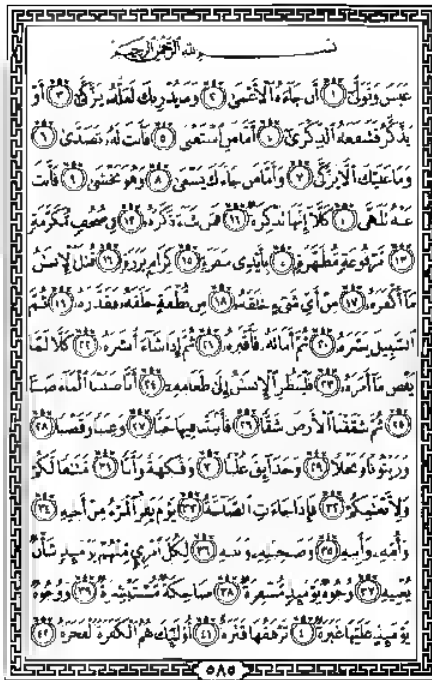 بسم الله الرحمن الرحيم
عَبَسَ وَتَوَلَّىٰ ١ أَن جَاءَهُ الْأَعْمَىٰ ٢ وَمَا يُدْرِيكَ لَعَلَّهُ يَزَّكَّىٰ ٣ أَوْ
يَذَّكَّرُ فَتَنفَعَهُ الذِّكْرَىٰ ٤ أَمَّا مَنِ اسْتَغْنَىٰ ٥ فَأَنتَ لَهُ تَصَدَّىٰ ٦
وَمَا عَلَيْكَ أَلَّا يَزَّكَّىٰ ٧ وَأَمَّا مَن جَاءَكَ يَسْعَىٰ ٨ وَهُوَ يَخْشَىٰ ٩ فَأَنتَ
عَنْهُ تَلَهَّىٰ ١٠ كَلَّا إِنَّهَا تَذْكِرَةٌ ١١ فَمَن شَاءَ ذَكَرَهُ ١٢ فِي صُحُفٍ مُّكَرَّمَةٍ
١٣ مَّرْفُوعَةٍ مُّطَهَّرَةٍ ١٤ بِأَيْدِي سَفَرَةٍ ١٥ كِرَامٍ بَرَرَةٍ ١٦ قُتِلَ الْإِنسَانُ
مَا أَكْفَرَهُ ١٧ مِنْ أَيِّ شَيْءٍ خَلَقَهُ ١٨ مِن نُّطْفَةٍ خَلَقَهُ فَقَدَّرَهُ ١٩ ثُمَّ
السَّبِيلَ يَسَّرَهُ ٢٠ ثُمَّ أَمَاتَهُ فَأَقْبَرَهُ ٢١ ثُمَّ إِذَا شَاءَ أَنشَرَهُ ٢٢ كَلَّا لَمَّا
يَقْضِ مَا أَمَرَهُ ٢٣ فَلْيَنظُرِ الْإِنسَانُ إِلَىٰ طَعَامِهِ ٢٤ أَنَّا صَبَبْنَا الْمَاءَ صَبًّا
٢٥ ثُمَّ شَقَقْنَا الْأَرْضَ شَقًّا ٢٦ فَأَنبَتْنَا فِيهَا حَبًّا ٢٧ وَعِنَبًا وَقَضْبًا ٢٨
وَزَيْتُونًا وَنَخْلًا ٢٩ وَحَدَائِقَ غُلْبًا ٣٠ وَفَاكِهَةً وَأَبًّا ٣١ مَّتَاعًا لَّكُمْ
وَلِأَنْعَامِكُمْ ٣٢ فَإِذَا جَاءَتِ الصَّاخَّةُ ٣٣ يَوْمَ يَفِرُّ الْمَرْءُ مِنْ أَخِيهِ ٣٤
وَأُمِّهِ وَأَبِيهِ ٣٥ وَصَاحِبَتِهِ وَبَنِيهِ ٣٦ لِكُلِّ امْرِئٍ مِّنْهُمْ يَوْمَئِذٍ شَأْنٌ
يُغْنِيهِ ٣٧ وُجُوهٌ يَوْمَئِذٍ مُّسْفِرَةٌ ٣٨ ضَاحِكَةٌ مُّسْتَبْشِرَةٌ ٣٩ وَوُجُوهٌ
يَوْمَئِذٍ عَلَيْهَا غَبَرَةٌ ٤٠ تَرْهَقُهَا قَتَرَةٌ ٤١ أُولَٰئِكَ هُمُ الْكَفَرَةُ الْفَجَرَةُ ٤٢
٥٨٥